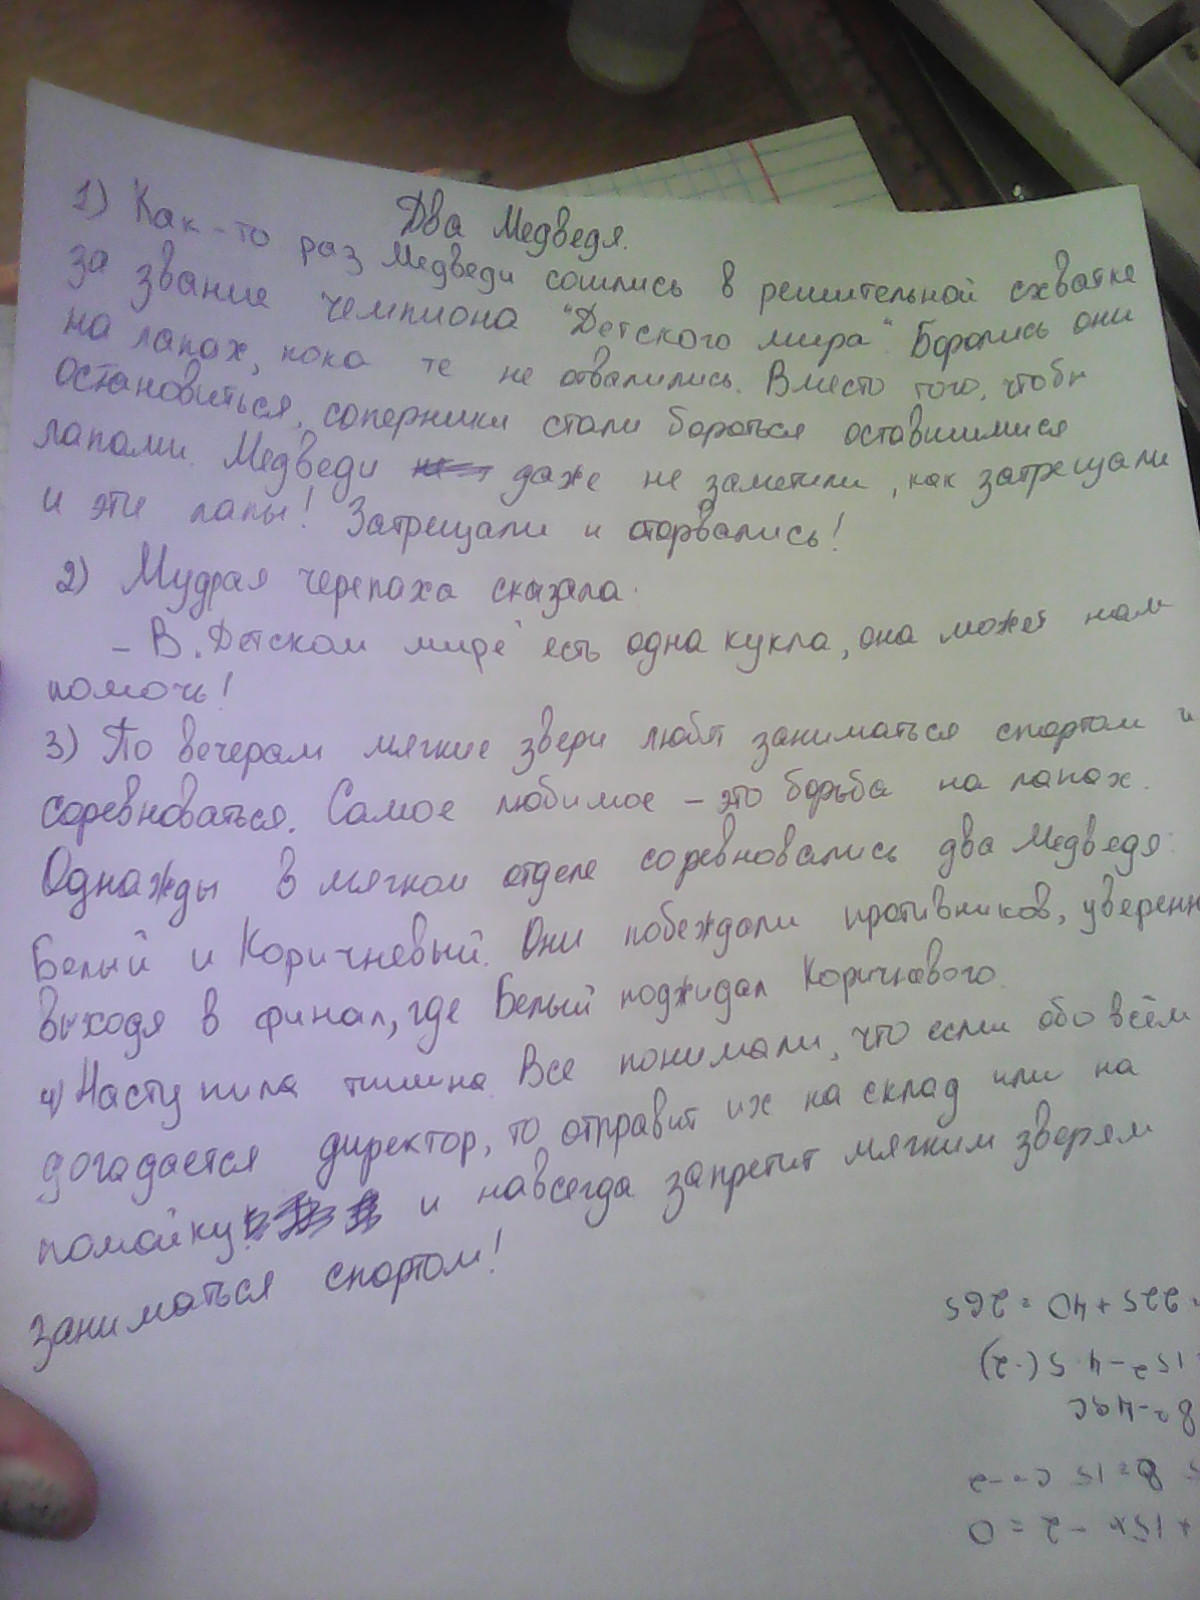 Два Медведя.
1) Как-то раз Медведи сошлись в решительной схватке
за звание чемпиона "Детского мира". Боролись они
на лапах, пока те не отвалились. Вместо того, чтобы
остановиться, соперники стали бороться оставшимися
лапами. Медведи даже не заметили, как затрещали
и эти лапы! Затрещали и оторвались!
2) Мудрая черепаха сказала:
- В "Детском мире" есть одна кукла, она может нам
помочь!
3) По вечерам мягкие звери любят заниматься спортом и
соревноваться. Самое любимое - это борьба на лапах.
Однажды в мягком отделе соревновались два Медведя:
Белый и Коричневый. Они побеждали противников, уверенн
выходя в финал, где Белый поджидал Коричневого.
4) Наступила тишина. Все понимали, что если обо всём
догадается директор, то отправит их на склад или на
помойку и навсегда запретит мягким зверям
заниматься спортом!
+ 15x - 2 = 0
в = 15 с = -2
в² - 4ас
15² - 4·5·(-2)
= 225 + 40 = 265